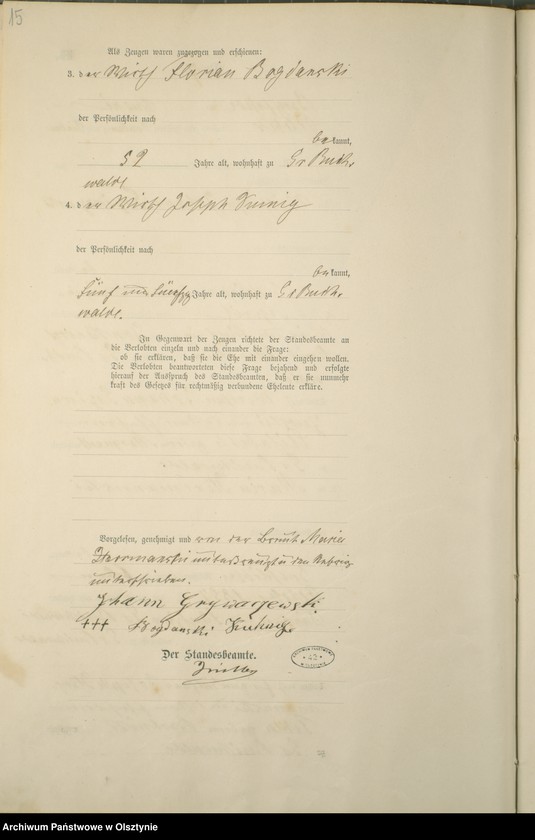 15
Als Zeugen waren zugezogen und erschienen:
3. der Wirth Florian Bogdanski
der Persönlichkeit nach
bekannt,
59 Jahre alt, wohnhaft zu Gr Buch-
walde
4. der Wirth Joseph
der Persönlichkeit nach
bekannt,
fünf und fünfzig Jahre alt, wohnhaft zu Gr Buch-
walde.
In Gegenwart der Zeugen richtete der Standesbeamte an
die Verlobten einzeln und nach einander die Frage:
ob sie erklären, daß sie die Ehe mit einander eingehen wollen.
Die Verlobten beantworteten diese Frage bejahend und erfolgte
hierauf der Ausspruch des Standesbeamten, daß er sie nunmehr
kraft des Gesetzes für rechtmäßig verbundene Eheleute erkläre.
Vorgelesen, genehmigt und von der Braut Maria
unterkreuzt u den Uebrigen
unterschrieben.
Johann
+++ Bogdanski
Der Standesbeamte.
Archiwum Państwowe w Olsztynie